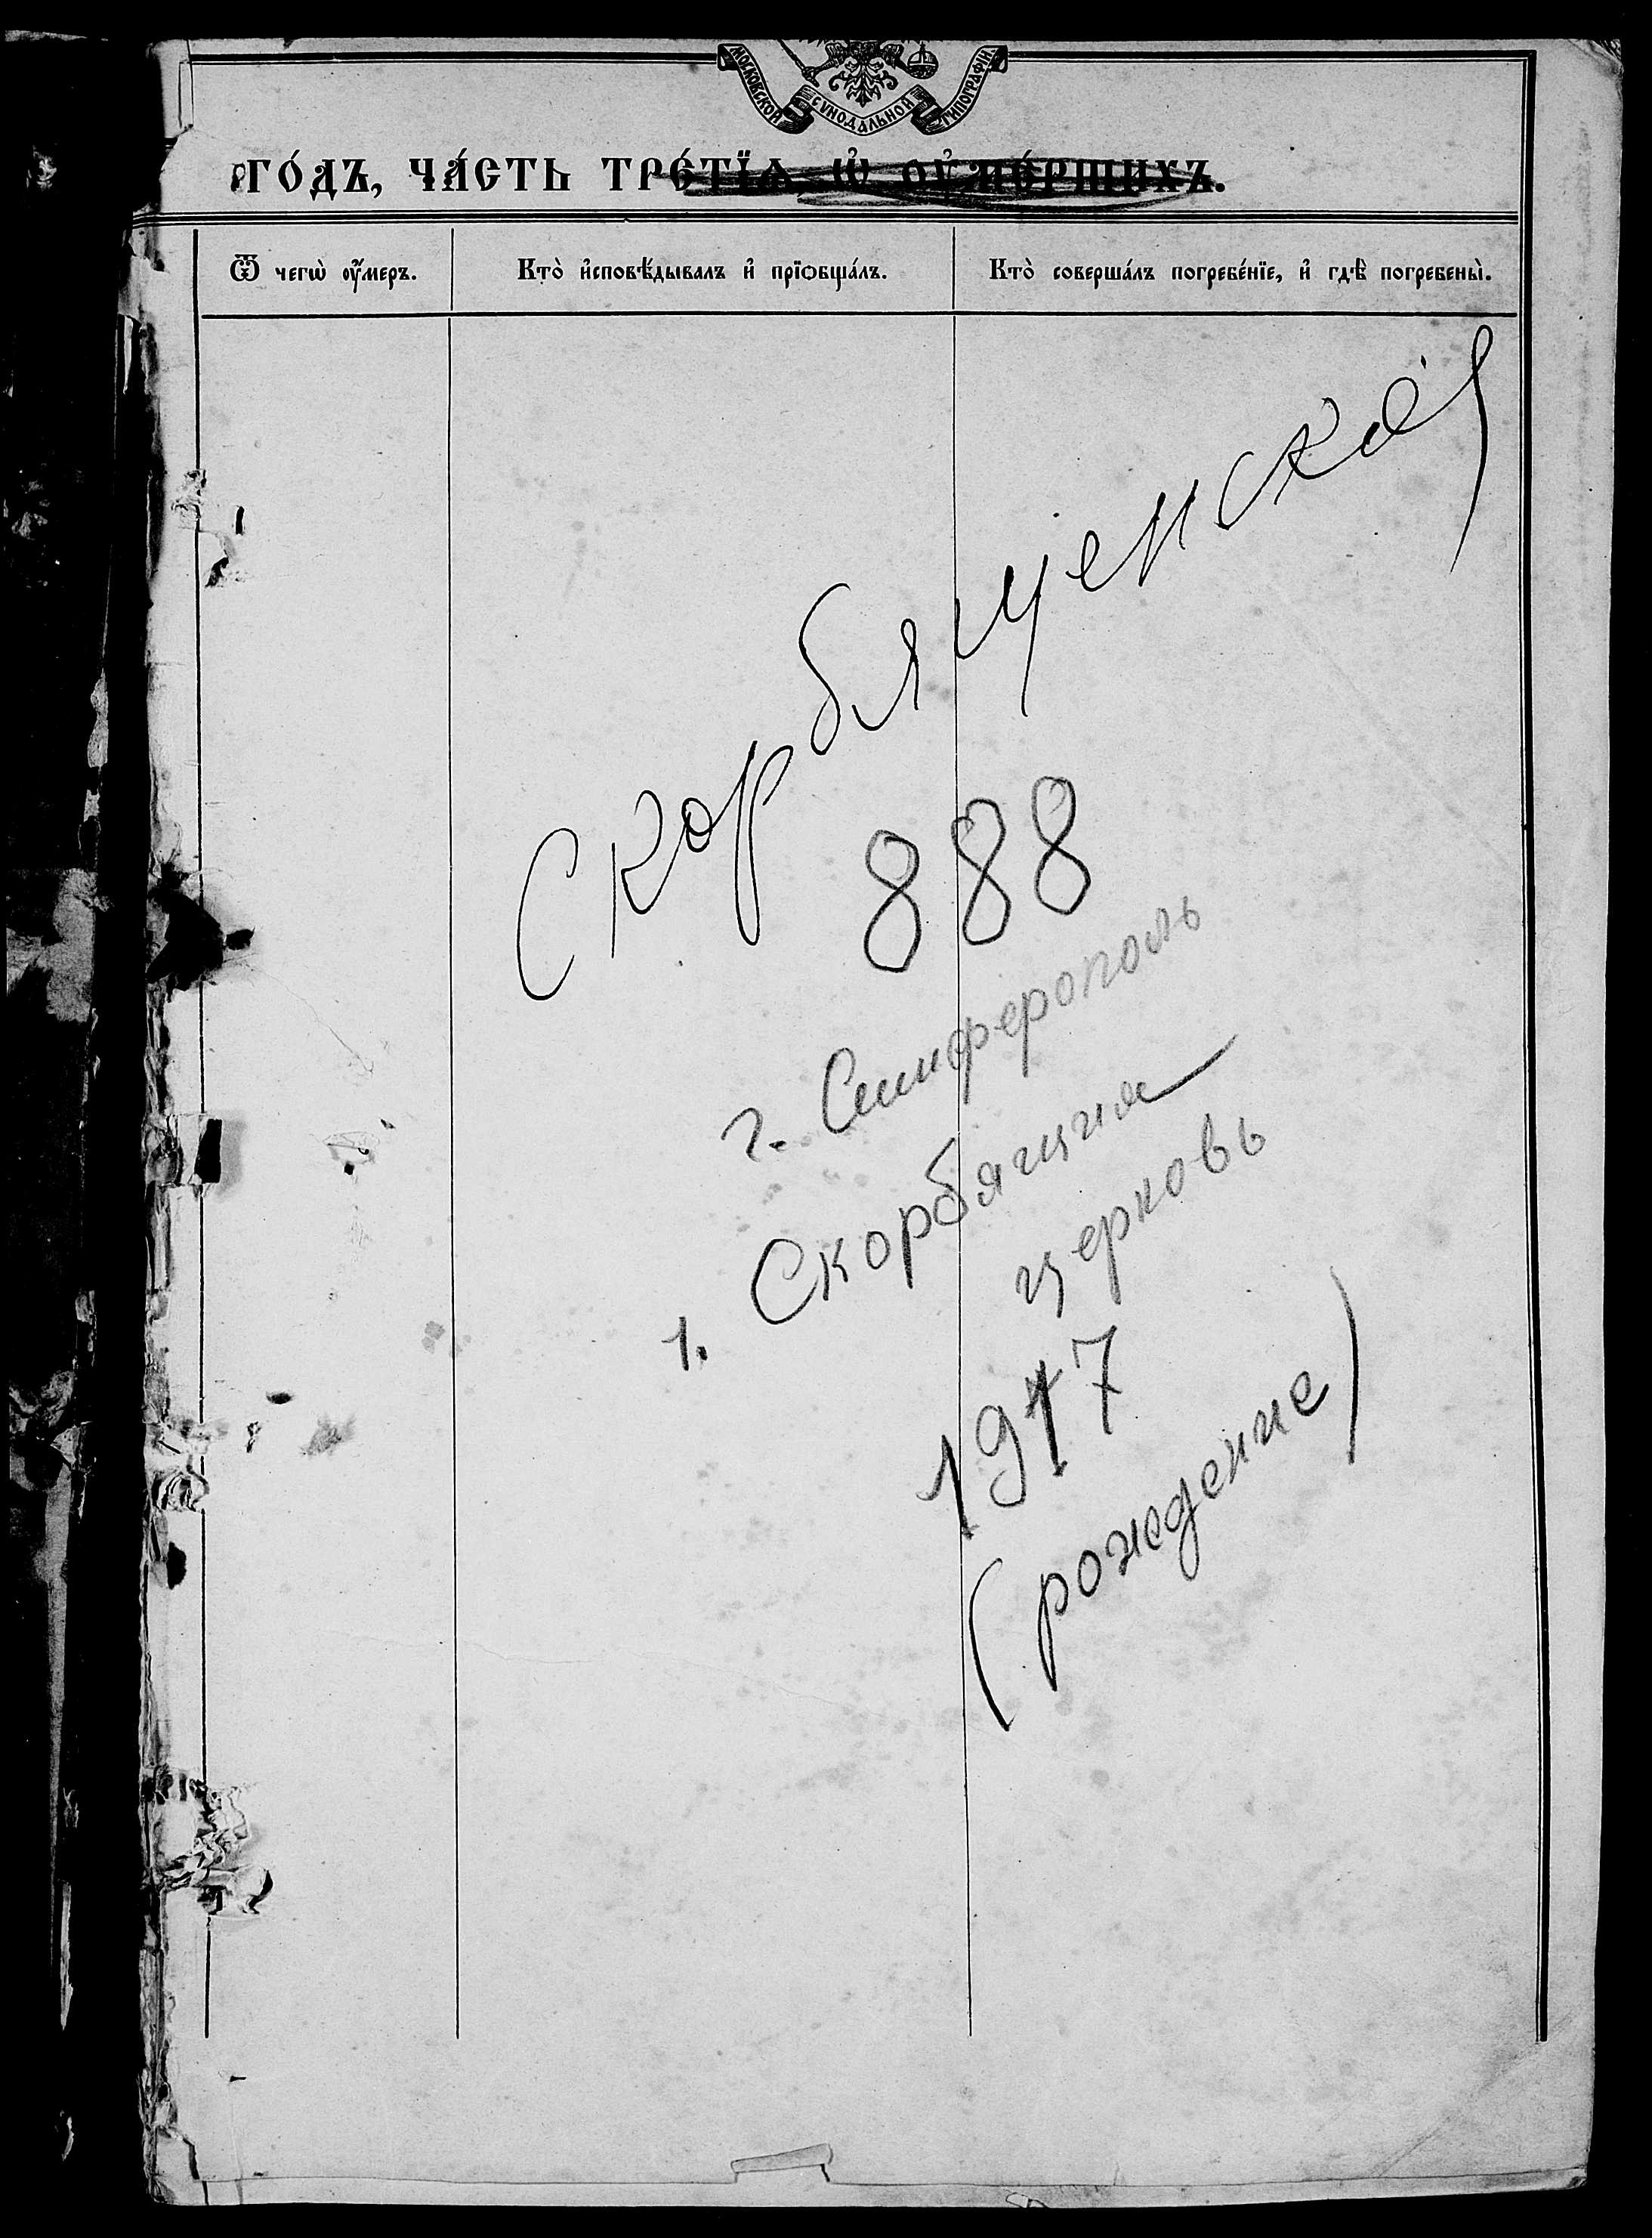 МОСКОВСКОЙ СУНОДАЛЬНОЙ ТИПОГРАФІИ.
ГО́ДЪ, ЧА́СТЬ ТРЕ́ТЇѦ, Ѡ҆ ОУ҆МЕ́РШИХЪ.
Ѿ чегѡ̀ оу҆́меръ.
Кто̀ и҆сповѣ́дывалъ и҆ прїѻбща́лъ.
Кто̀ соверша́лъ погребе́нїе, и҆ гдѣ̀ погребены̀.
Скорбященской
888
г. Симферополь
1. Скорбящная
церковь
1917
(рождение)